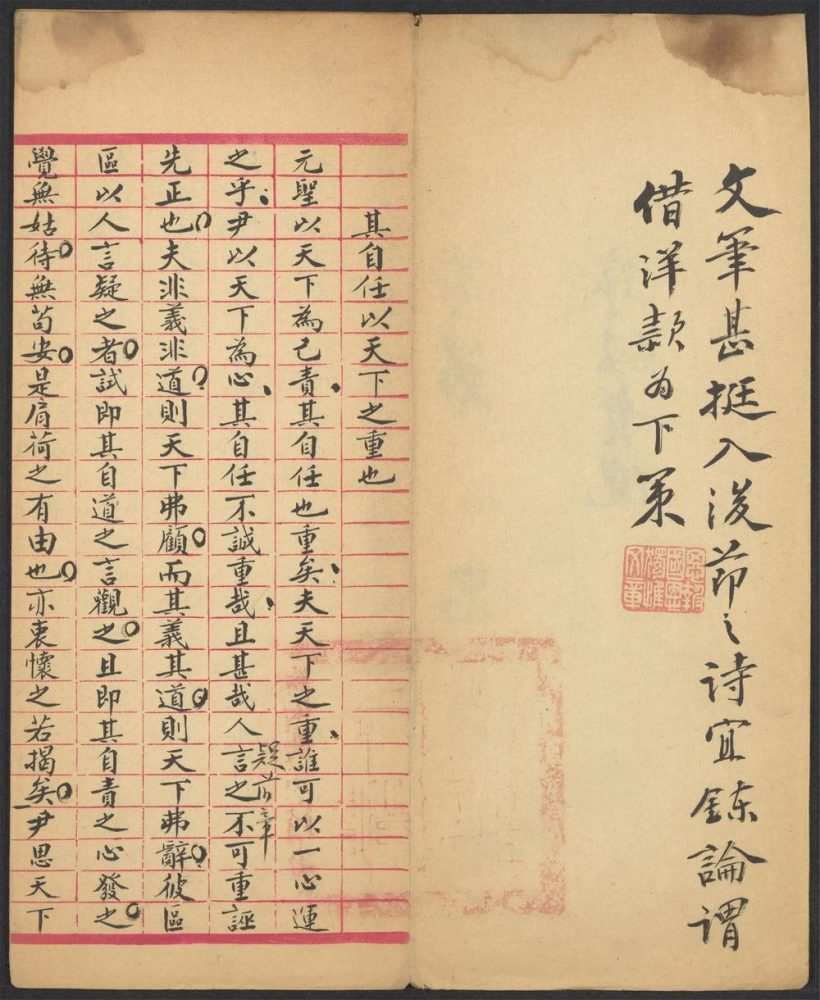 文筆甚挺入後節之詩宜錬論謂
借洋款為下策
其自任以天下之重也
元聖以天下為己責其自任也重矣夫天下之重誰可以一心運
之乎尹以天下為心其自任不誠重哉且甚哉人言之不可重誣
疑前章
先正也夫非義非道則天下弗顧而其義其道則天下弗辭彼區
區以人言疑之者試即其自道之言觀之且即其自責之心發之
覺無姑待無苟安是肩荷之有由也亦衷懷之若揭矣尹思天下